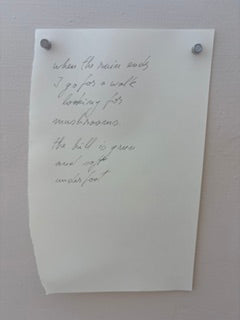 when the rain ends
I go for a walk
looking for
mushrooms
the hill is green
and soft
underfoot